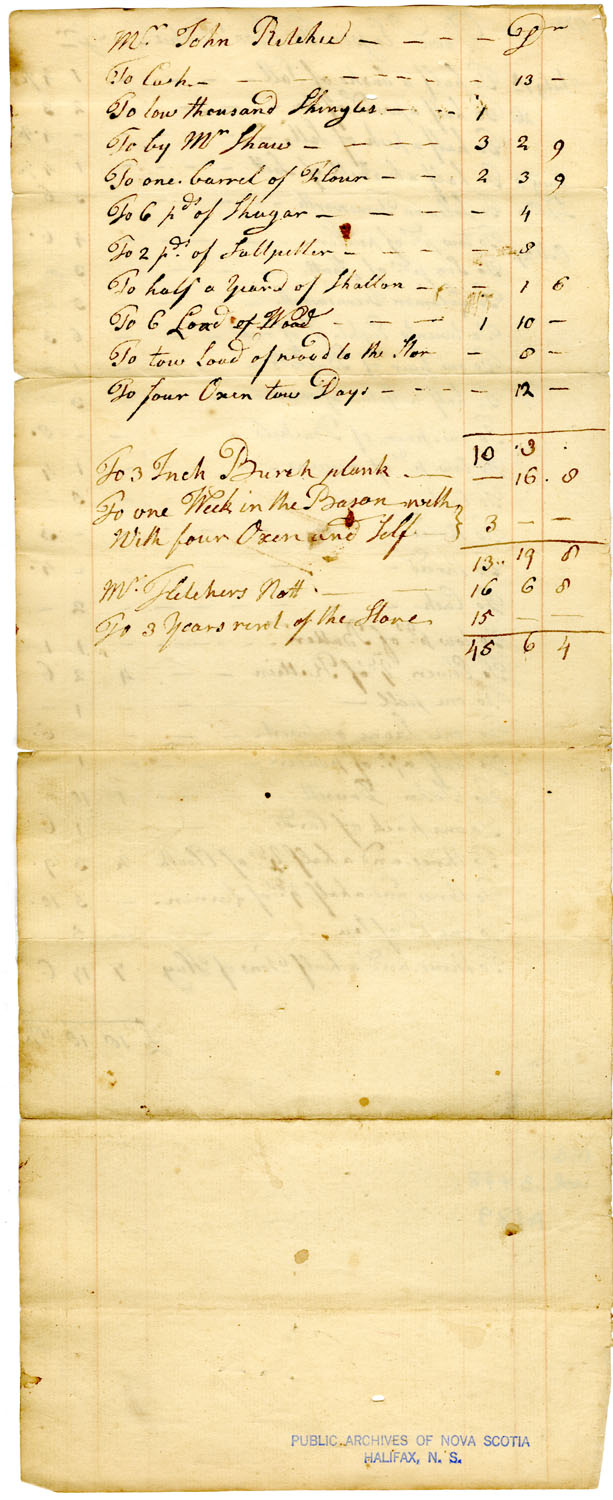 Mr. John Ritchie — — — — Dr
To Cash — — — — — — — 13 —
To tow thousand Shingles — — 1
To by Mr Shaw — — — — 3 2 9
To one barrel of Flour — — 2 3 9
To 6 pds of Shugar — — — — 4
To 2 pds of Saltpetter — — — — 8
To half a Yeard of Shallon — — — 1 6
To 6 Load of Wood — — — 1 10 —
To tow Load of wood to the Stor — 8 —
To four Oxen tow Days — — — — 12 —
10 3
To 3 Inch Burch plank — — 16 . 8
To one Week in the Bason with
With four Oxen and Self } 3 — —
13 19 8
Mr. Fletchers Nott — — 16 6 8
To 3 Years rent of the Store 15 — —
45 6 4
PUBLIC ARCHIVES OF NOVA SCOTIA
HALIFAX, N. S.